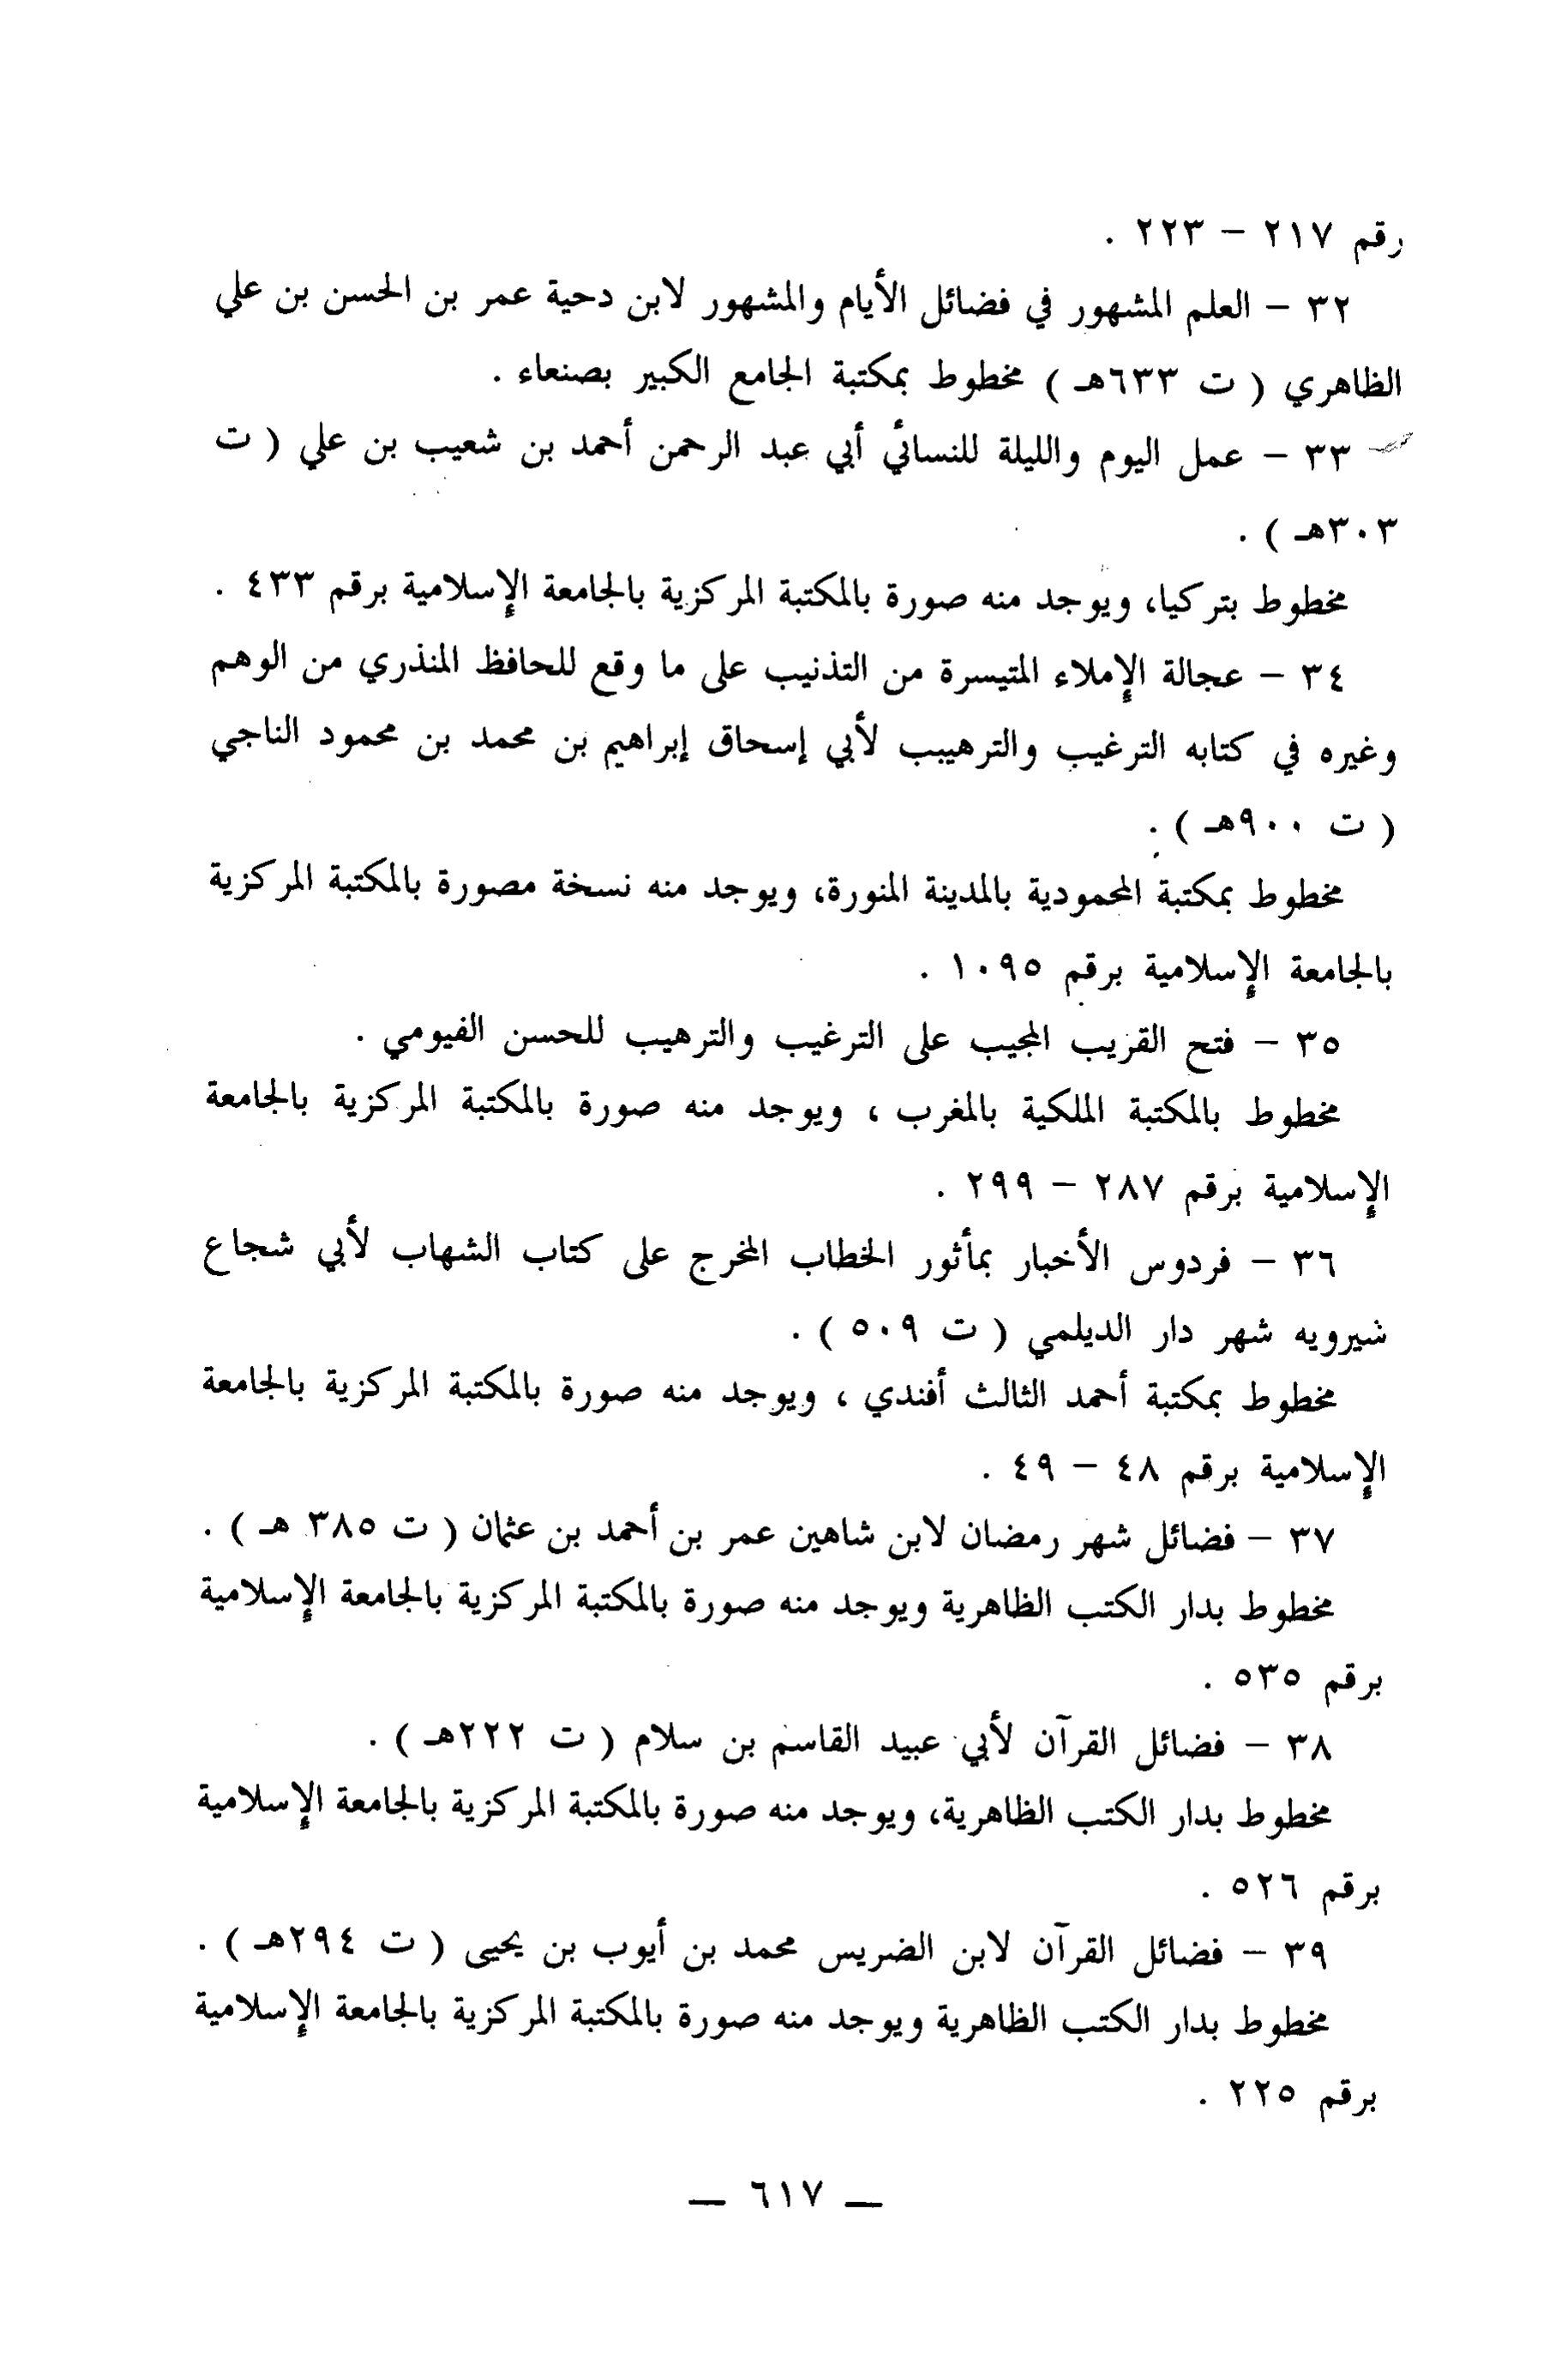 رقم ٢١٧ – ٢٢٣ .
٣٢ – العلم المشهور في فضائل الأيام والمشهور لابن دحية عمر بن الحسن بن علي
الظاهري ( ت ٦٣٣هـ ) مخطوط بمكتبة الجامع الكبير بصنعاء .
٣٣ – عمل اليوم والليلة للنسائي أبي عبد الرحمن أحمد بن شعيب بن علي ( ت
٣٠٣هـ ) .
مخطوط بتركيا، ويوجد منه صورة بالمكتبة المركزية بالجامعة الإسلامية برقم ٤٣٣ .
٣٤ – عجالة الإملاء المتيسرة من التذنيب على ما وقع للحافظ المنذري من الوهم
وغيره في كتابه الترغيب والترهيبب لأبي إسحاق إبراهيم بن محمد بن محمود الناجي
( ت ٩٠٠هـ ) .
مخطوط بمكتبة المحمودية بالمدينة المنورة، ويوجد منه نسخة مصورة بالمكتبة المركزية
بالجامعة الإسلامية برقم ١٠٩٥ .
٣٥ – فتح القريب المجيب على الترغيب والترهيب للحسن الفيومي .
مخطوط بالمكتبة الملكية بالمغرب ، ويوجد منه صورة بالمكتبة المركزية بالجامعة
الإسلامية برقم ٢٨٧ – ٢٩٩ .
٣٦ – فردوس الأخبار بمأثور الخطاب المخرج على كتاب الشهاب لأبي شجاع
شيرويه شهر دار الديلمي ( ت ٥٠٩ ) .
مخطوط بمكتبة أحمد الثالث أفندي ، ويوجد منه صورة بالمكتبة المركزية بالجامعة
الإسلامية برقم ٤٨ – ٤٩ .
٣٧ – فضائل شهر رمضان لابن شاهين عمر بن أحمد بن عثمان ( ت ٣٨٥ هـ ) .
مخطوط بدار الكتب الظاهرية ويوجد منه صورة بالمكتبة المركزية بالجامعة الإسلامية
برقم ٥٣٥ .
٣٨ – فضائل القرآن لأبي عبيد القاسم بن سلام ( ت ٢٢٢هـ ) .
مخطوط بدار الكتب الظاهرية، ويوجد منه صورة بالمكتبة المركزية بالجامعة الإسلامية
برقم ٥٢٦ .
٣٩ – فضائل القرآن لابن الضريس محمد بن أيوب بن يحيى ( ت ٢٩٤هـ ) .
مخطوط بدار الكتب الظاهرية ويوجد منه صورة بالمكتبة المركزية بالجامعة الإسلامية
برقم ٢٢٥ .
— ٦١٧ —